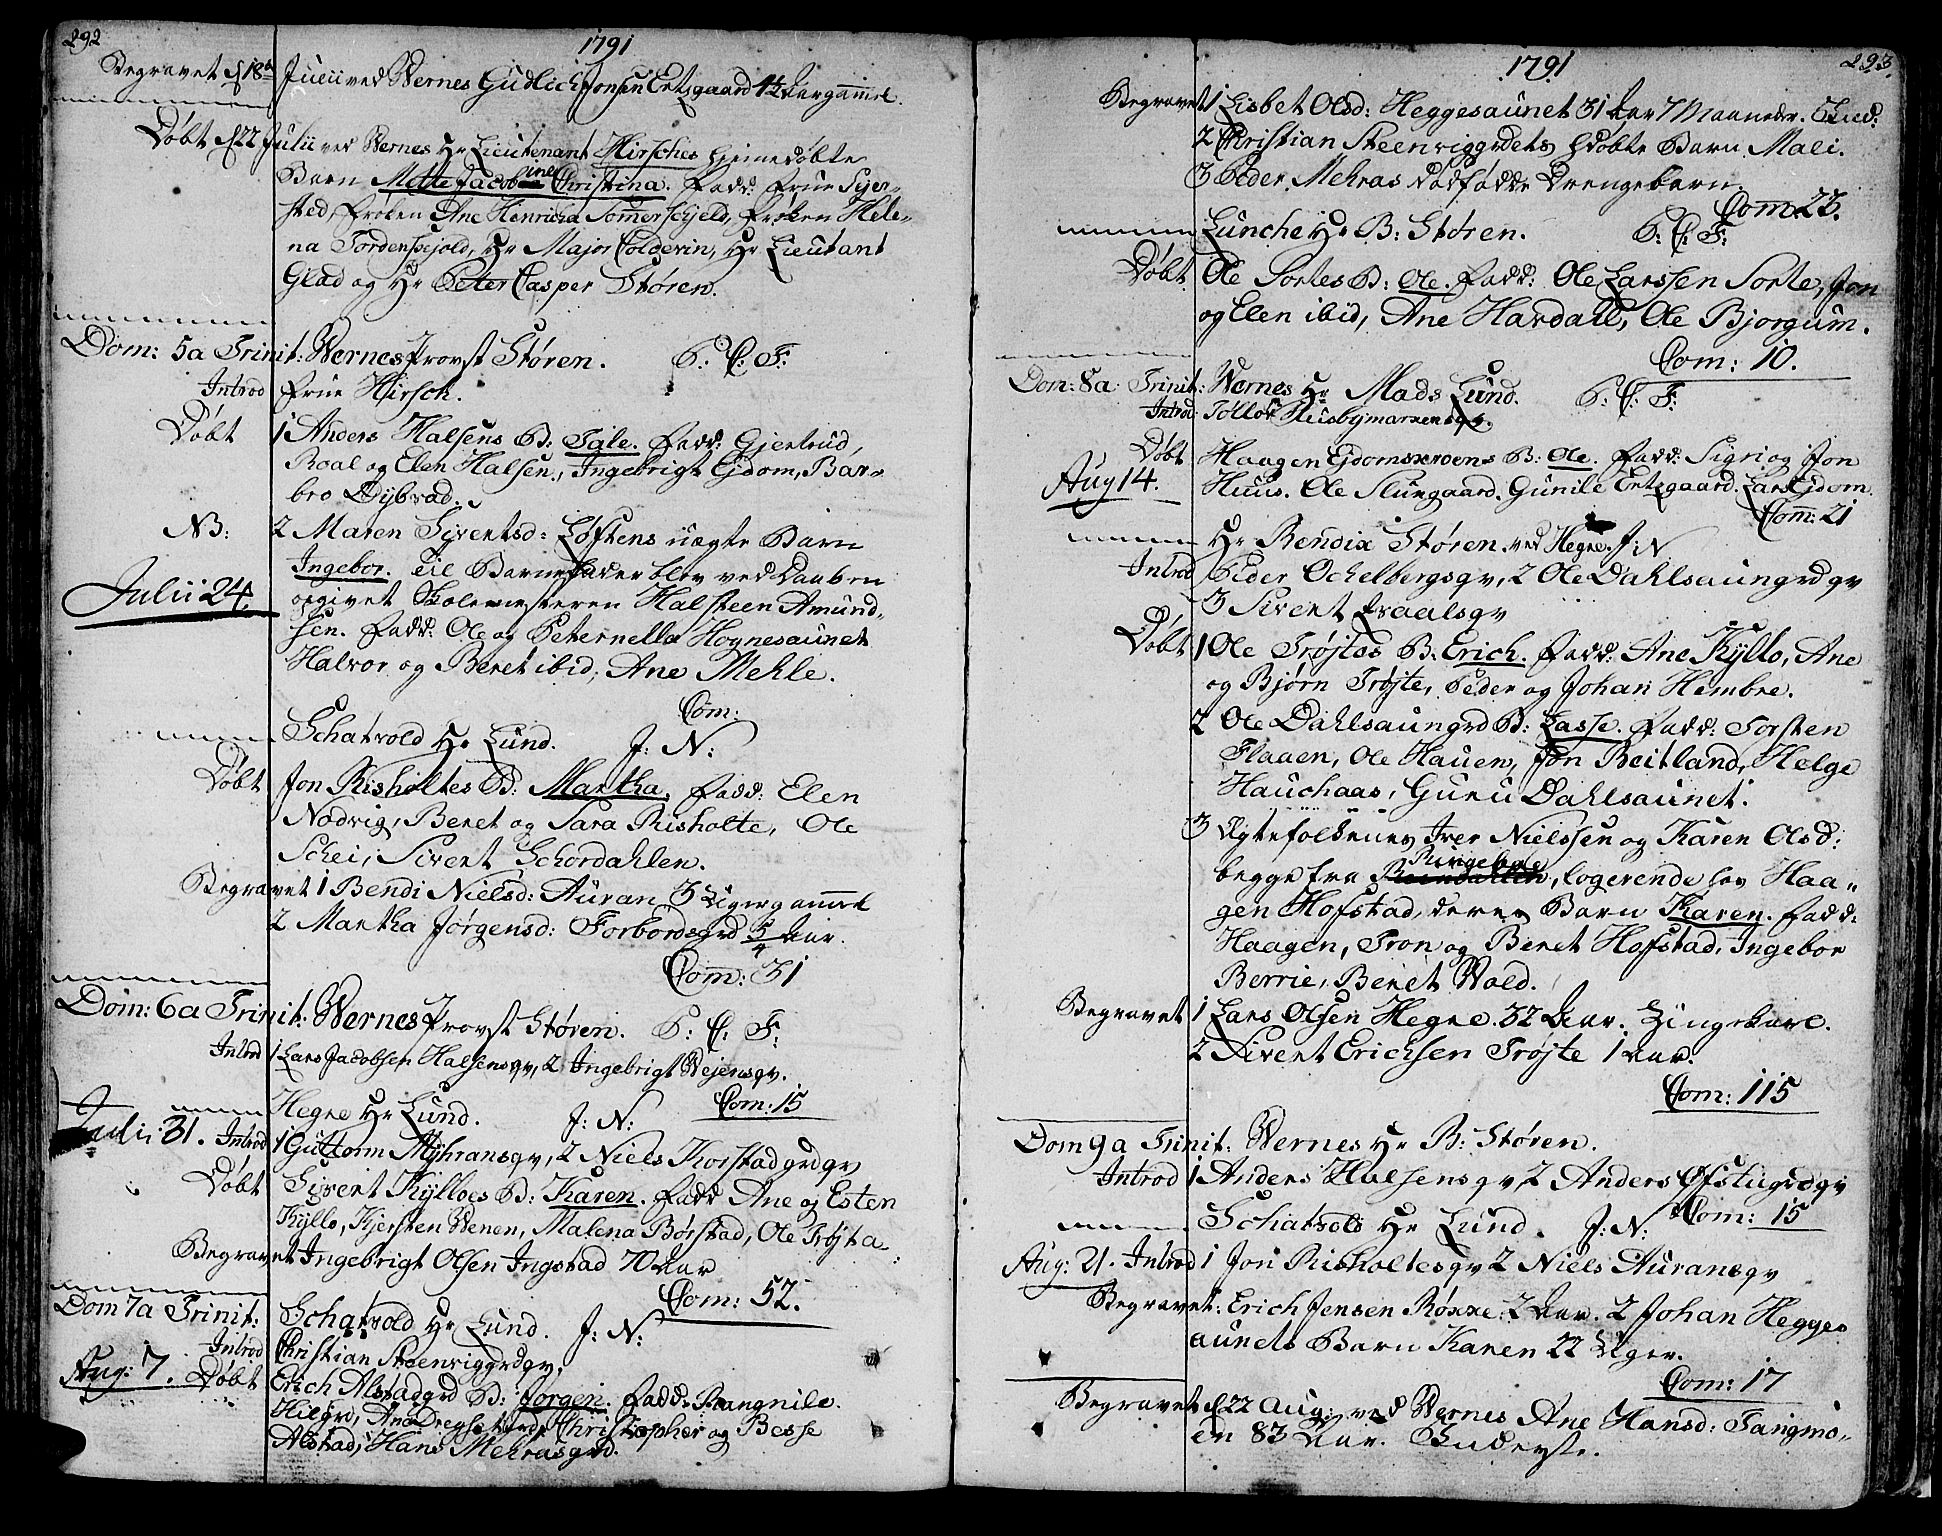 292
1791
Begravet d 18de Julii ved Wernes Gudlich Jonsen Ertsgaard 1½ Aar gammel.
Døbt d 22 Julii ved Wernes Hr Lieutenant Hirsches hjemedøbte
Barn Mette Jacobine Christina. Fadd: Frue Sejer-
sted, Frøken Ane Henricha Somerschjeld, Frøken Hele-
na Tordenskjold, Hr Major Coldevin, Hr Lieutant
Glad og Hr Peter Casper Støren.
Dom: 5a Trinit: Wernes Provst Støren. P: C: F:
Introd Frue Hirsch.
Døbt 1 Anders Halsens B: Tale. Fadd: Gjertrud,
Roal og Elen Halsen, Ingebrigt Ejdom, Bar-
bro Dybvad.
NB: 2 Maren Siventsd: Løftens uægte Barn
Ingebor. Til Barnefader blev ved Daaben
Julii 24.
opgivet Skolemesteren Halsteen Amund-
sen. Fadd: Ole og Peternella Hognesaunet
Halvor og Beret ibid, Ane Mehle.
Com:
Schatvold Hr Lund. J: N:
Døbt Jon Risholtes B: Martha. Fadd: Elen
Nodvig, Beret og Sara Risholte, Ole
Schei, Sivent Schordahlen.
Begravet 1 Bendi Nielsd: Auran 3 Uger gammel
2 Martha Jørgensd: Forbordsgrd 5/4 Aar.
Com: 31
Dom: 6a Trinit: Wernes Provst Støren. P: C: F:
Introd 1 Lars Jacobsen Halsens qv, 2 Ingebrigt Vejens qv.
Com: 15
Hegre Hr Lund. J: N:
Julii 31. Introd 1 Guttorm Myhrans qv, 2 Niels Korstadgrd qv
Døbt Sivent Kylloes B: Karen. Fadd Ane og Esten
Kyllo, Kjersten Wenen, Malena Børstad, Ole Trøjta-
Begravet Ingebrigt Olsen Ingstad 70 Aar
Com: 52.
Dom 7a Trinit: Schatvold Hr Lund. J: N:
Introd Christian Steenviggrd qv.
Aug: 7. Døbt Erich Alstadgrd B: Jørgen. Fadd: Rangnile
Hilgrd, Ane Christopher og Besse
Alstad, Hans Mehrasgrd.
293.
1791
Begravet 1 Lisbet Olsd: Heggesaunet 31 Aar 7 Maaneder.
2 Christian Steenviggrdets hdøbte Barn Mali.
3 Peder Mehras dødfødde Drengebarn.
Com 23.
Lunche Hr B: Støren. P: C: F:
Døbt Ole Sortes B: Ole. Fadd: Ole Larssen Sorte, Jon
og Elen ibid, Ane Hardall, Ole Bjorgum.
Com: 10.
Dom: 8a Trinit: Wernes Hr Mads Lund. P: C: F:
Introd: Tollov Husbymarken qv.
Døbt Haagen Ejdomskroens B: Ole. Fadd: Sigri og Jon
Aug 14.
Huus. Ole Slungaard. Gunile Ertsgaard. Lars Ejdom.
Com: 21
Hr Bendix Støren ved Hegre. J: N
Introd Peder Ochelbergs qv, 2 Ole Dahlsaungrd qv
3 Sivent Fraals qv
Døbt 1 Ole Trøjtes B: Erich. Fadd: Ane Kyllo, Ane
og Bjørn Trøjte, Peder og Johan Hembre.
2 Ole Dahlsaungrd B: Lasse. Fadd: Torsten
Flaaen, Ole Hauen, Jon Beitland, Helge
Hauchaas, Guru Dahlsaunet.
3 Ægtefolkenes Iver Nielssen og Karen Olsd:
begge fra Ringeboe, logerende hos Haa-
gen Hofstad, deres Barn Karen. Fadd:
Haagen, Tron og Beret Hofstad, Ingebor
Berrie, Beret Wold.
Begravet 1 Lars Olsen Hegre. 32 Aar. Ungekarl.
2 Sivent Ericksen Trøjte 1 Aar.
Com: 115
Dom 9a Trinit: Wernes Hr B: Støren.
Introd 1 Anders Halsens qv, 2 Anders Øfstigrd qv
Com: 15
Schatvold Hr Lund. J: N:
Aug: 21. Introd 1 Jon Risholtes qv 2 Niels Aurans qv
Begravet: Erich Jensen Røkke 2 Aar. 2 Johan Hegges
aunets Barn Karen 22 Uger.
Com: 17
Begravet d 22 Aug: ved Wernes Ane Hansd: Tangmo-
en 83 Aar.